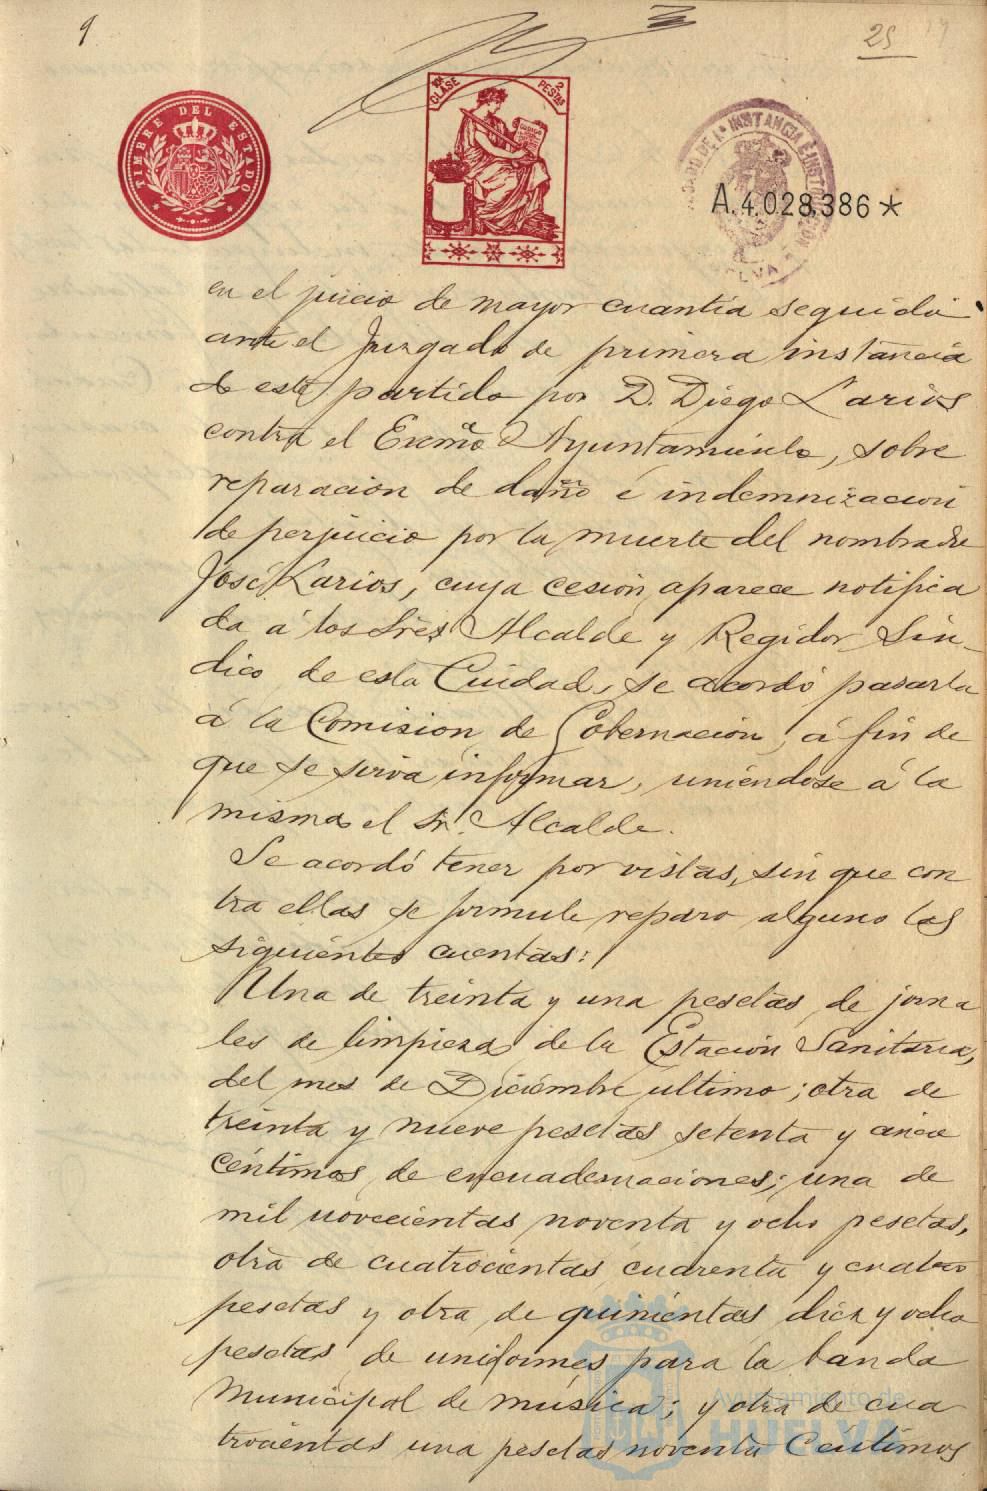 9
25
TIMBRE DEL ESTADO
CLASE
2 PESTAS
CODIGO
DE 1ª INSTANCIA É INSTRUCCION
A.4.028.386*
en el juicio de mayor cuantía seguido
ante el Juzgado de primera instancia
de este partido por D. Diego Larios
contra el Excmo Ayuntamiento, sobre
reparacion de daño é indemnizacion
de perjuicio por la muerte del nombrado
José Larios, cuya cesión aparece notifica
da á los Sres Alcalde y Regidor Sin-
dico de esta Ciudad, se acordó pasarla
á la Comision de Gobernación, á fin de
que se sirva informar, uniéndose á la
misma el Sr. Alcalde.
Se acordó tener por vistas, sin que con
tra ellas se formule reparo alguno las
siguientes cuentas:
Una de treinta y una pesetas, de jorna
les de limpieza de la Estación Sanitaria,
del mes de Diciembre ultimo; otra de
treinta y nueve pesetas setenta y cinco
céntimos de encuadernaciones; una de
mil novecientas noventa y ocho pesetas,
otra de cuatrocientas cuarenta y cuatro
pesetas y otra de quinientas diez y ocho
pesetas, de uniformes para la banda
Municipal de música; y otra de cua
trocientas una pesetas noventa Centimos
Ayuntamiento de
HUELVA